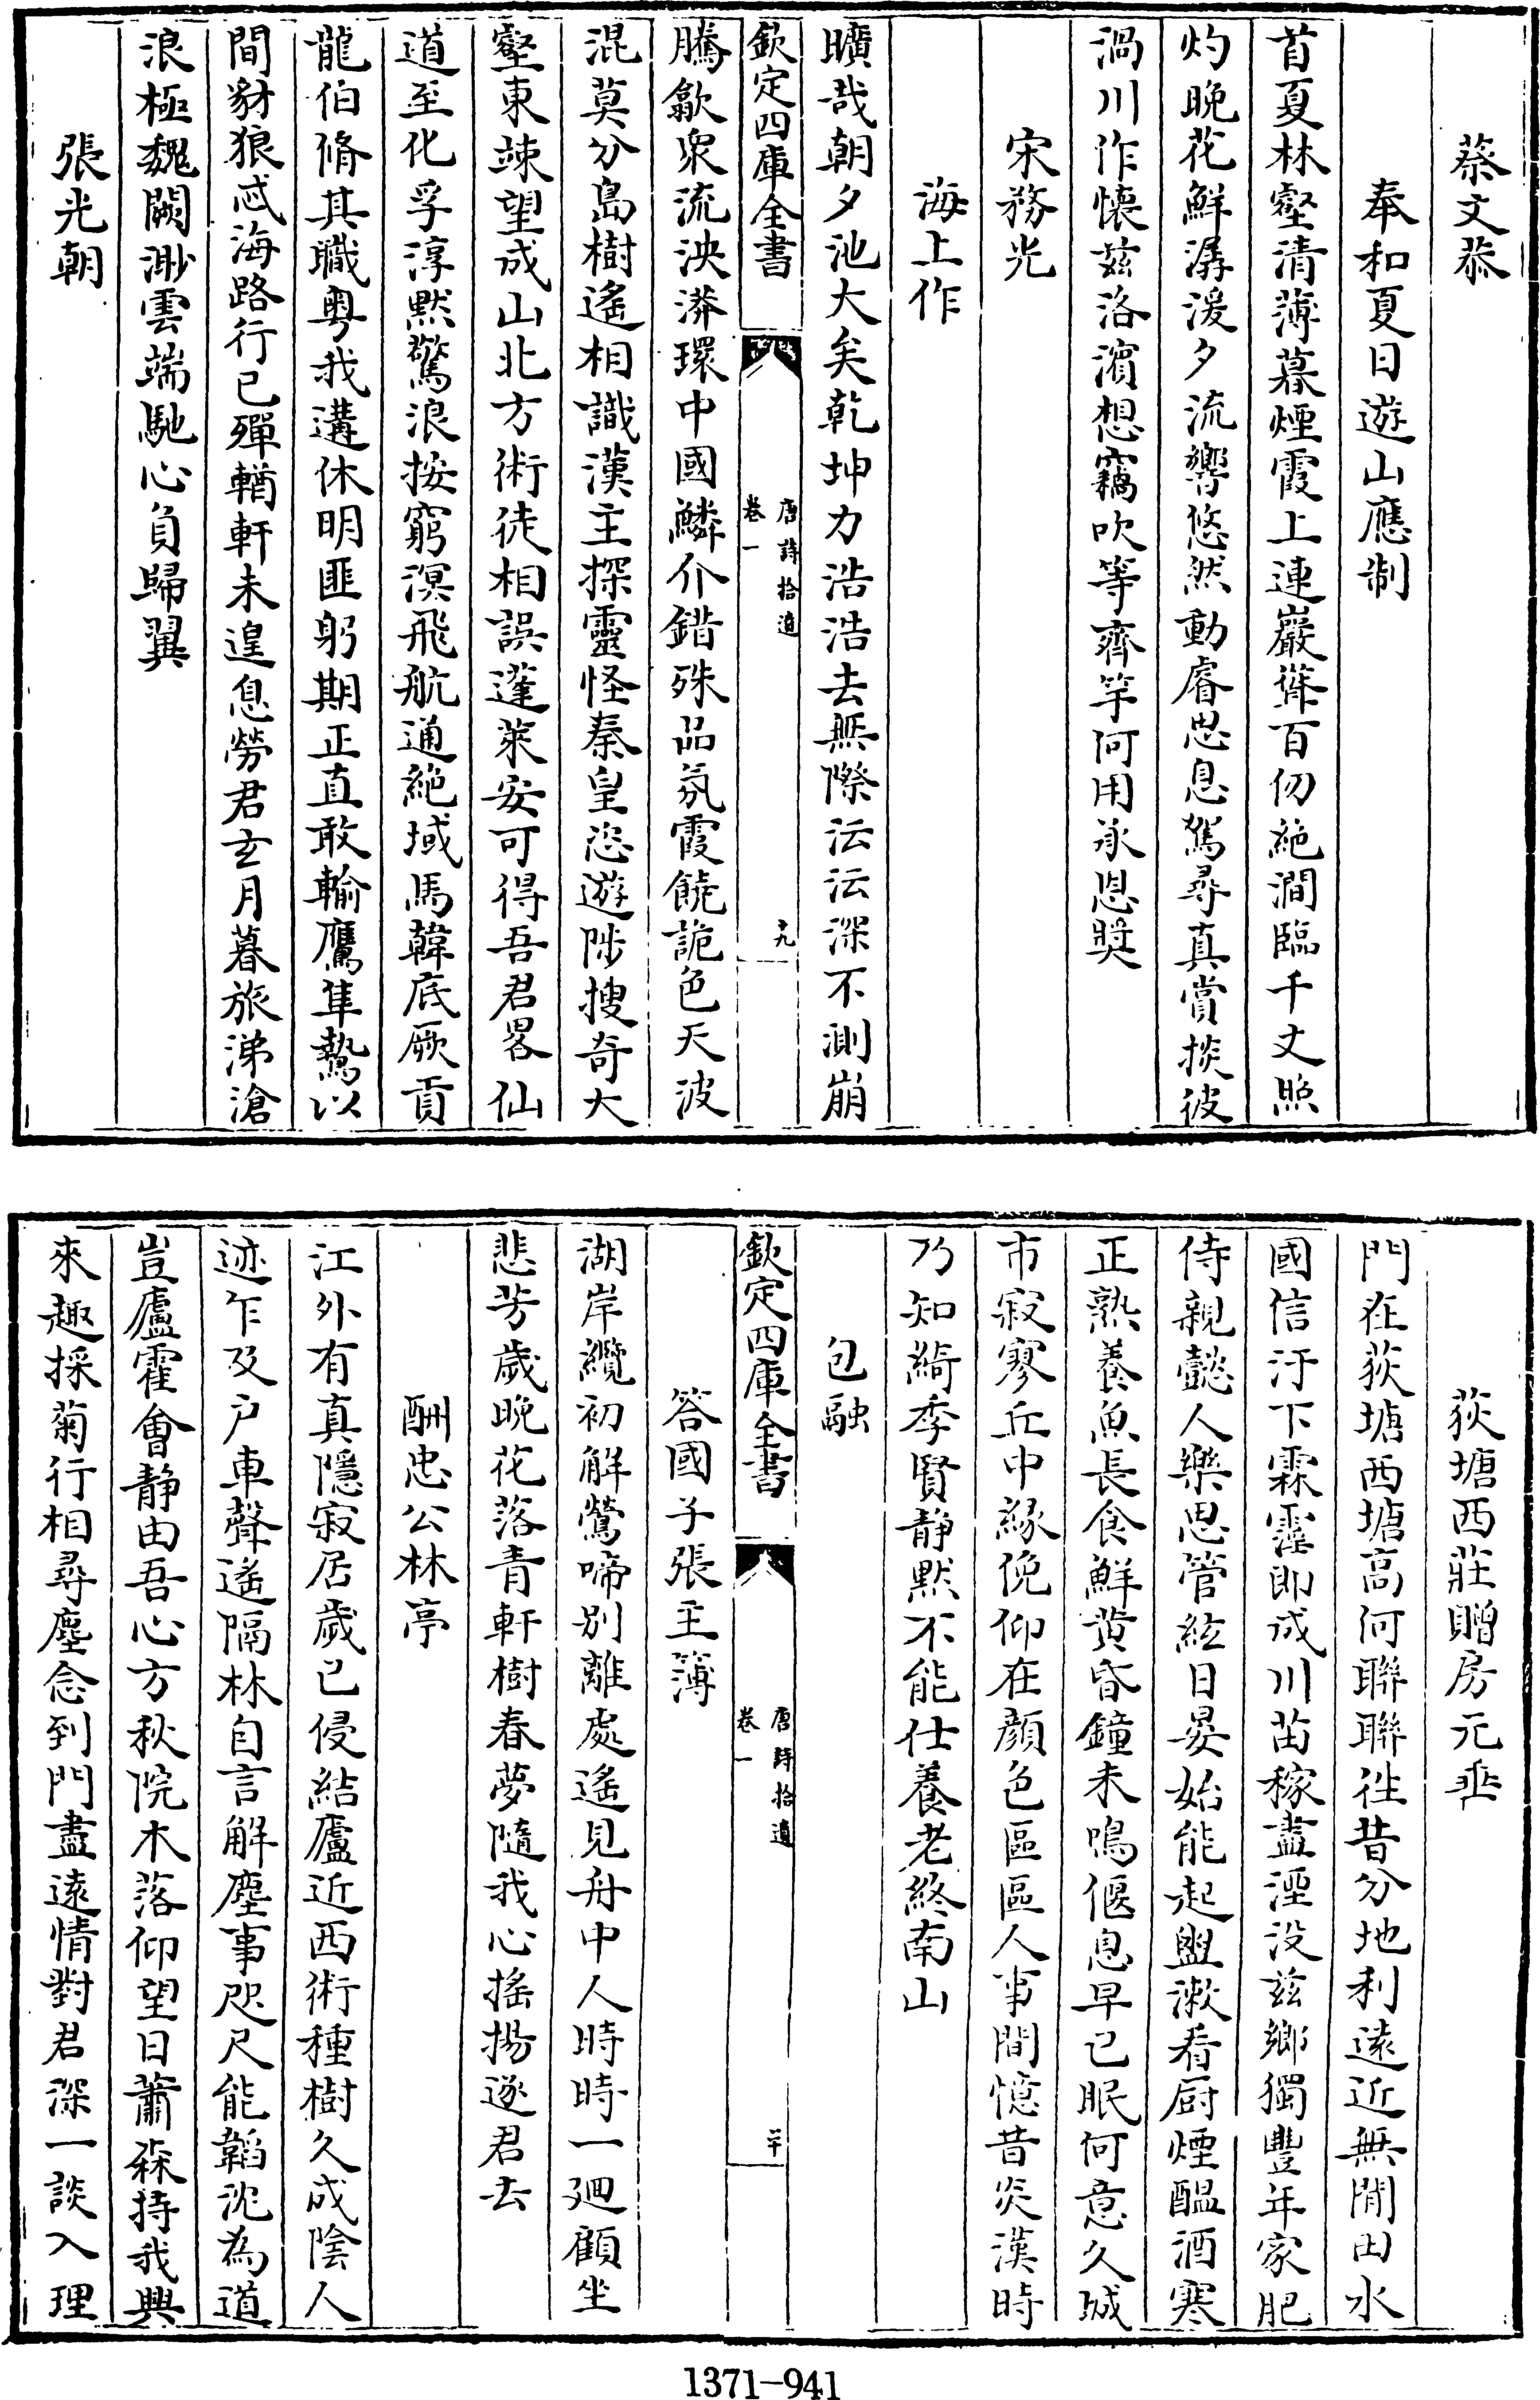 蔡文恭
奉和夏日遊山應制
首夏林壑清薄暮煙霞上連巖聳百仞絶澗臨千丈照
灼晚花鮮潺湲夕流響悠然動睿思息駕尋真賞掞彼
渦川作懷兹洛濱想竊吹等齊竽何用承恩奬
宋務光
海上作
曠哉朝夕池大矣乾坤力浩浩去無際沄沄深不測崩
欽定四庫全書
唐詩拾遺
卷一
十九
騰歙衆流泱漭環中國鱗介錯殊品氛霞饒詭色天波
混莫分島樹遙相識漢主探靈怪秦皇恣遊陟搜奇大
壑東竦望成山北方術徒相誤蓬萊安可得吾君畧仙
道至化孚淳黙驚浪按窮溟飛航通絶域馬韓底厥貢
龍伯脩其職粤我遘休明匪躬期正直敢輸鷹隼鷙以
間豺狼忒海路行已殫輶軒未遑息勞君玄月暮旅涕滄
浪極魏闕渺雲端馳心負歸翼
張光朝
荻塘西莊贈房元垂
門在荻塘西塘高何聯聯往昔分地利遠近無閒田水
國信汙下霖霪即成川苗稼盡湮没兹鄉獨豐年家肥
侍親懿人樂思管絃日晏始能起盥漱看厨煙醖酒寒
正熟養魚長食鮮黄昏鐘未鳴偃息早已眠何意久城
市寂寥丘中緣俛仰在顔色區區人事間憶昔炎漢時
乃知綺季賢静黙不能仕養老終南山
包融
欽定四庫全書
唐詩拾遺
卷一
二十
答國子張主簿
湖岸纜初解鶯啼别離處遙見舟中人時時一廻顧坐
悲芳歲晚花落青軒樹春夢隨我心搖揚逐君去
酬忠公林亭
江外有真隱寂居歲已侵結廬近西術種樹久成隂人
迹乍及户車聲遙隔林自言解塵事咫尺能韜沈為道
豈廬霍會静由吾心方秋院木落仰望日蕭森持我興
來趣採菊行相尋塵念到門盡遠情對君深一談入理
1371-941